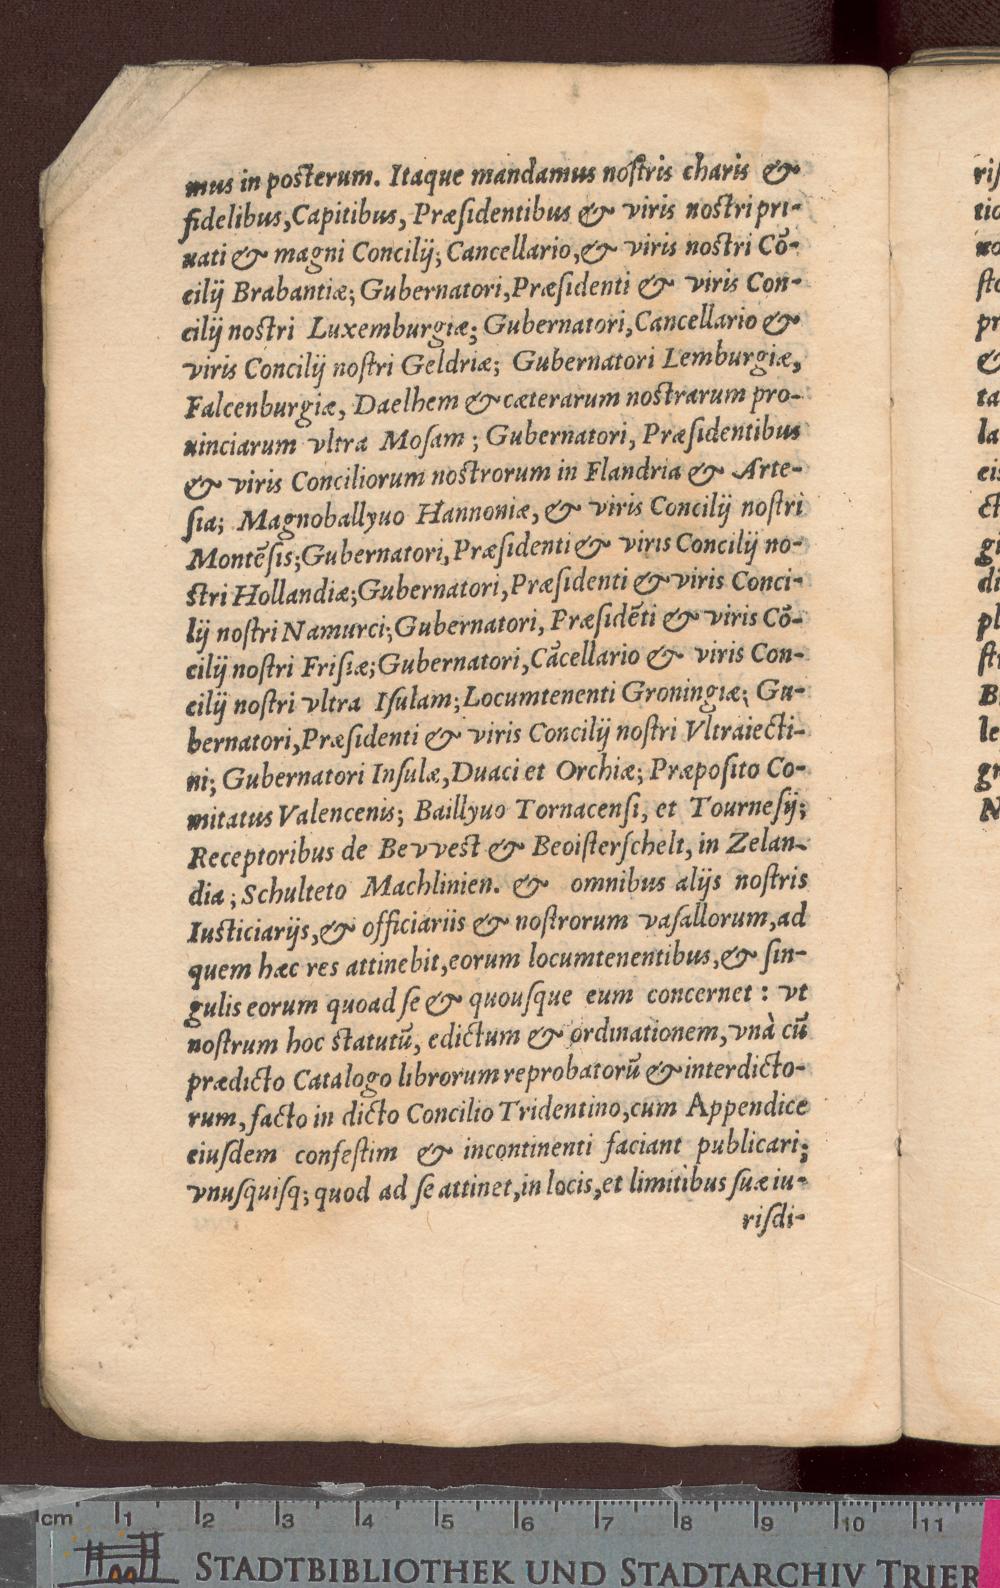 mus in posterum. Itaque mandamus nostris charis &
fidelibus, Capitibus, Præsidentibus & viris nostri pri-
uati & magni Concilij; Cancellario, & viris nostri Cõ-
cilij Brabantiæ; Gubernatori, Præsidenti & viris Con-
cilij nostri Luxemburgiæ; Gubernatori, Cancellario &
viris Concilij nostri Geldriæ; Gubernatori Lemburgiæ,
Falcenburgiæ, Daelhem & cæterarum nostrarum pro-
uinciarum vltra Mosam; Gubernatori, Præsidentibus
& viris Conciliorum nostrorum in Flandria & Arte-
sia; Magnoballyuo Hannoniæ, & viris Concilij nostri
Montẽsis; Gubernatori, Præsidenti & viris Concilij no-
stri Hollandiæ; Gubernatori, Præsidenti & viris Conci-
lij nostri Namurci; Gubernatori, Præsidẽti & viris Cõ-
cilij nostri Frisiæ; Gubernatori, Cãcellario & viris Con-
cilij nostri vltra Isulam; Locumtenenti Groningiæ; Gu-
bernatori, Præsidenti & viris Concilij nostri Vltraiecti-
ni; Gubernatori Insulæ, Duaci et Orchiæ; Præposito Co-
mitatus Valencenis; Baillyuo Tornacensi, et Tournesij;
Receptoribus de Bevvest & Beoisterschelt, in Zelan-
dia; Schulteto Machlinien. & omnibus alijs nostris
Iusticiarijs, & officiariis & nostrorum vasallorum, ad
quem hæc res attinebit, eorum locumtenentibus, & sin-
gulis eorum quoad se & quousque eum concernet: vt
nostrum hoc statutũ, edictum & ordinationem, vnà cũ
prædicto Catalogo librorum reprobatorũ & interdicto-
rum, facto in dicto Concilio Tridentino, cum Appendice
eiusdem confestim & incontinenti faciant publicari;
vnusquisq; quod ad se attinet, in locis, et limitibus suæ iu-
risdi-
cm 1 2 3 4 5 6 7 8 9 10 11
STADTBIBLIOTHEK UND STADTARCHIV TRIER